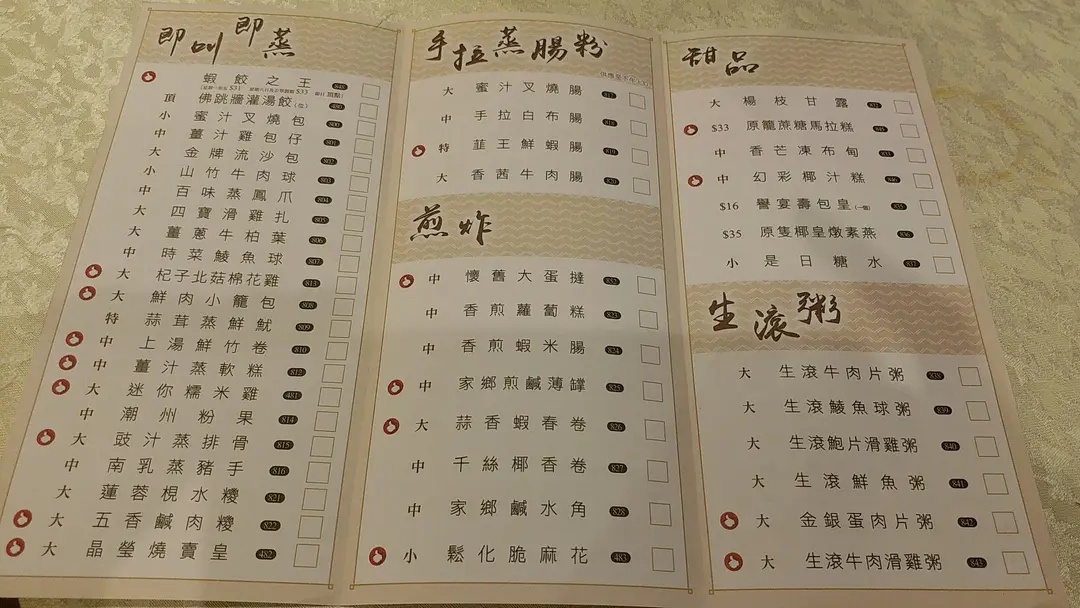 即叫即蒸
蝦餃之王
頂 佛跳牆灌湯餃(位)
小 蜜汁叉燒包 800
中 薑汁雞包仔 801
大 金牌流沙包 802
小 山竹牛肉球 803
中 百味蒸鳳爪 804
大 四寶滑雞扎 805
大 薑蔥牛柏葉 806
中 時菜鯪魚球 807
大 杞子北菇棉花雞 813
大 鮮肉小籠包 808
特 蒜茸蒸鮮魷 809
中 上湯鮮竹卷 810
中 薑汁蒸軟糕 812
大 迷你糯米雞 481
中 潮州粉果 814
大 豉汁蒸排骨 815
中 南乳蒸豬手 816
大 蓮蓉梘水糭 821
大 五香鹹肉糭 822
大 晶瑩燒賣皇 482
手拉蒸腸粉
大 蜜汁叉燒腸 817
中 手拉白布腸 818
特 韮王鮮蝦腸 819
大 香茜牛肉腸 820
煎炸
中 懷舊大蛋撻
中 香煎蘿蔔糕 823
中 香煎蝦米腸 824
中 家鄉煎鹹薄罉 825
大 蒜香蝦春卷 826
中 千絲椰香卷 827
中 家鄉鹹水角 828
小 鬆化脆麻花 483
甜品
大 楊枝甘露
$33 原籠蔗糖馬拉糕
中 香芒凍布甸
中 幻彩椰汁糕
$16 譽宴壽包皇(一個) 835
$35 原隻椰皇燉素燕 836
小 是日糖水 837
生滾粥
大 生滾牛肉片粥 838
大 生滾鯪魚球粥 839
大 生滾鮑片滑雞粥 840
大 生滾鮮魚粥 841
大 金銀蛋肉片粥 842
大 生滾牛肉滑雞粥 843